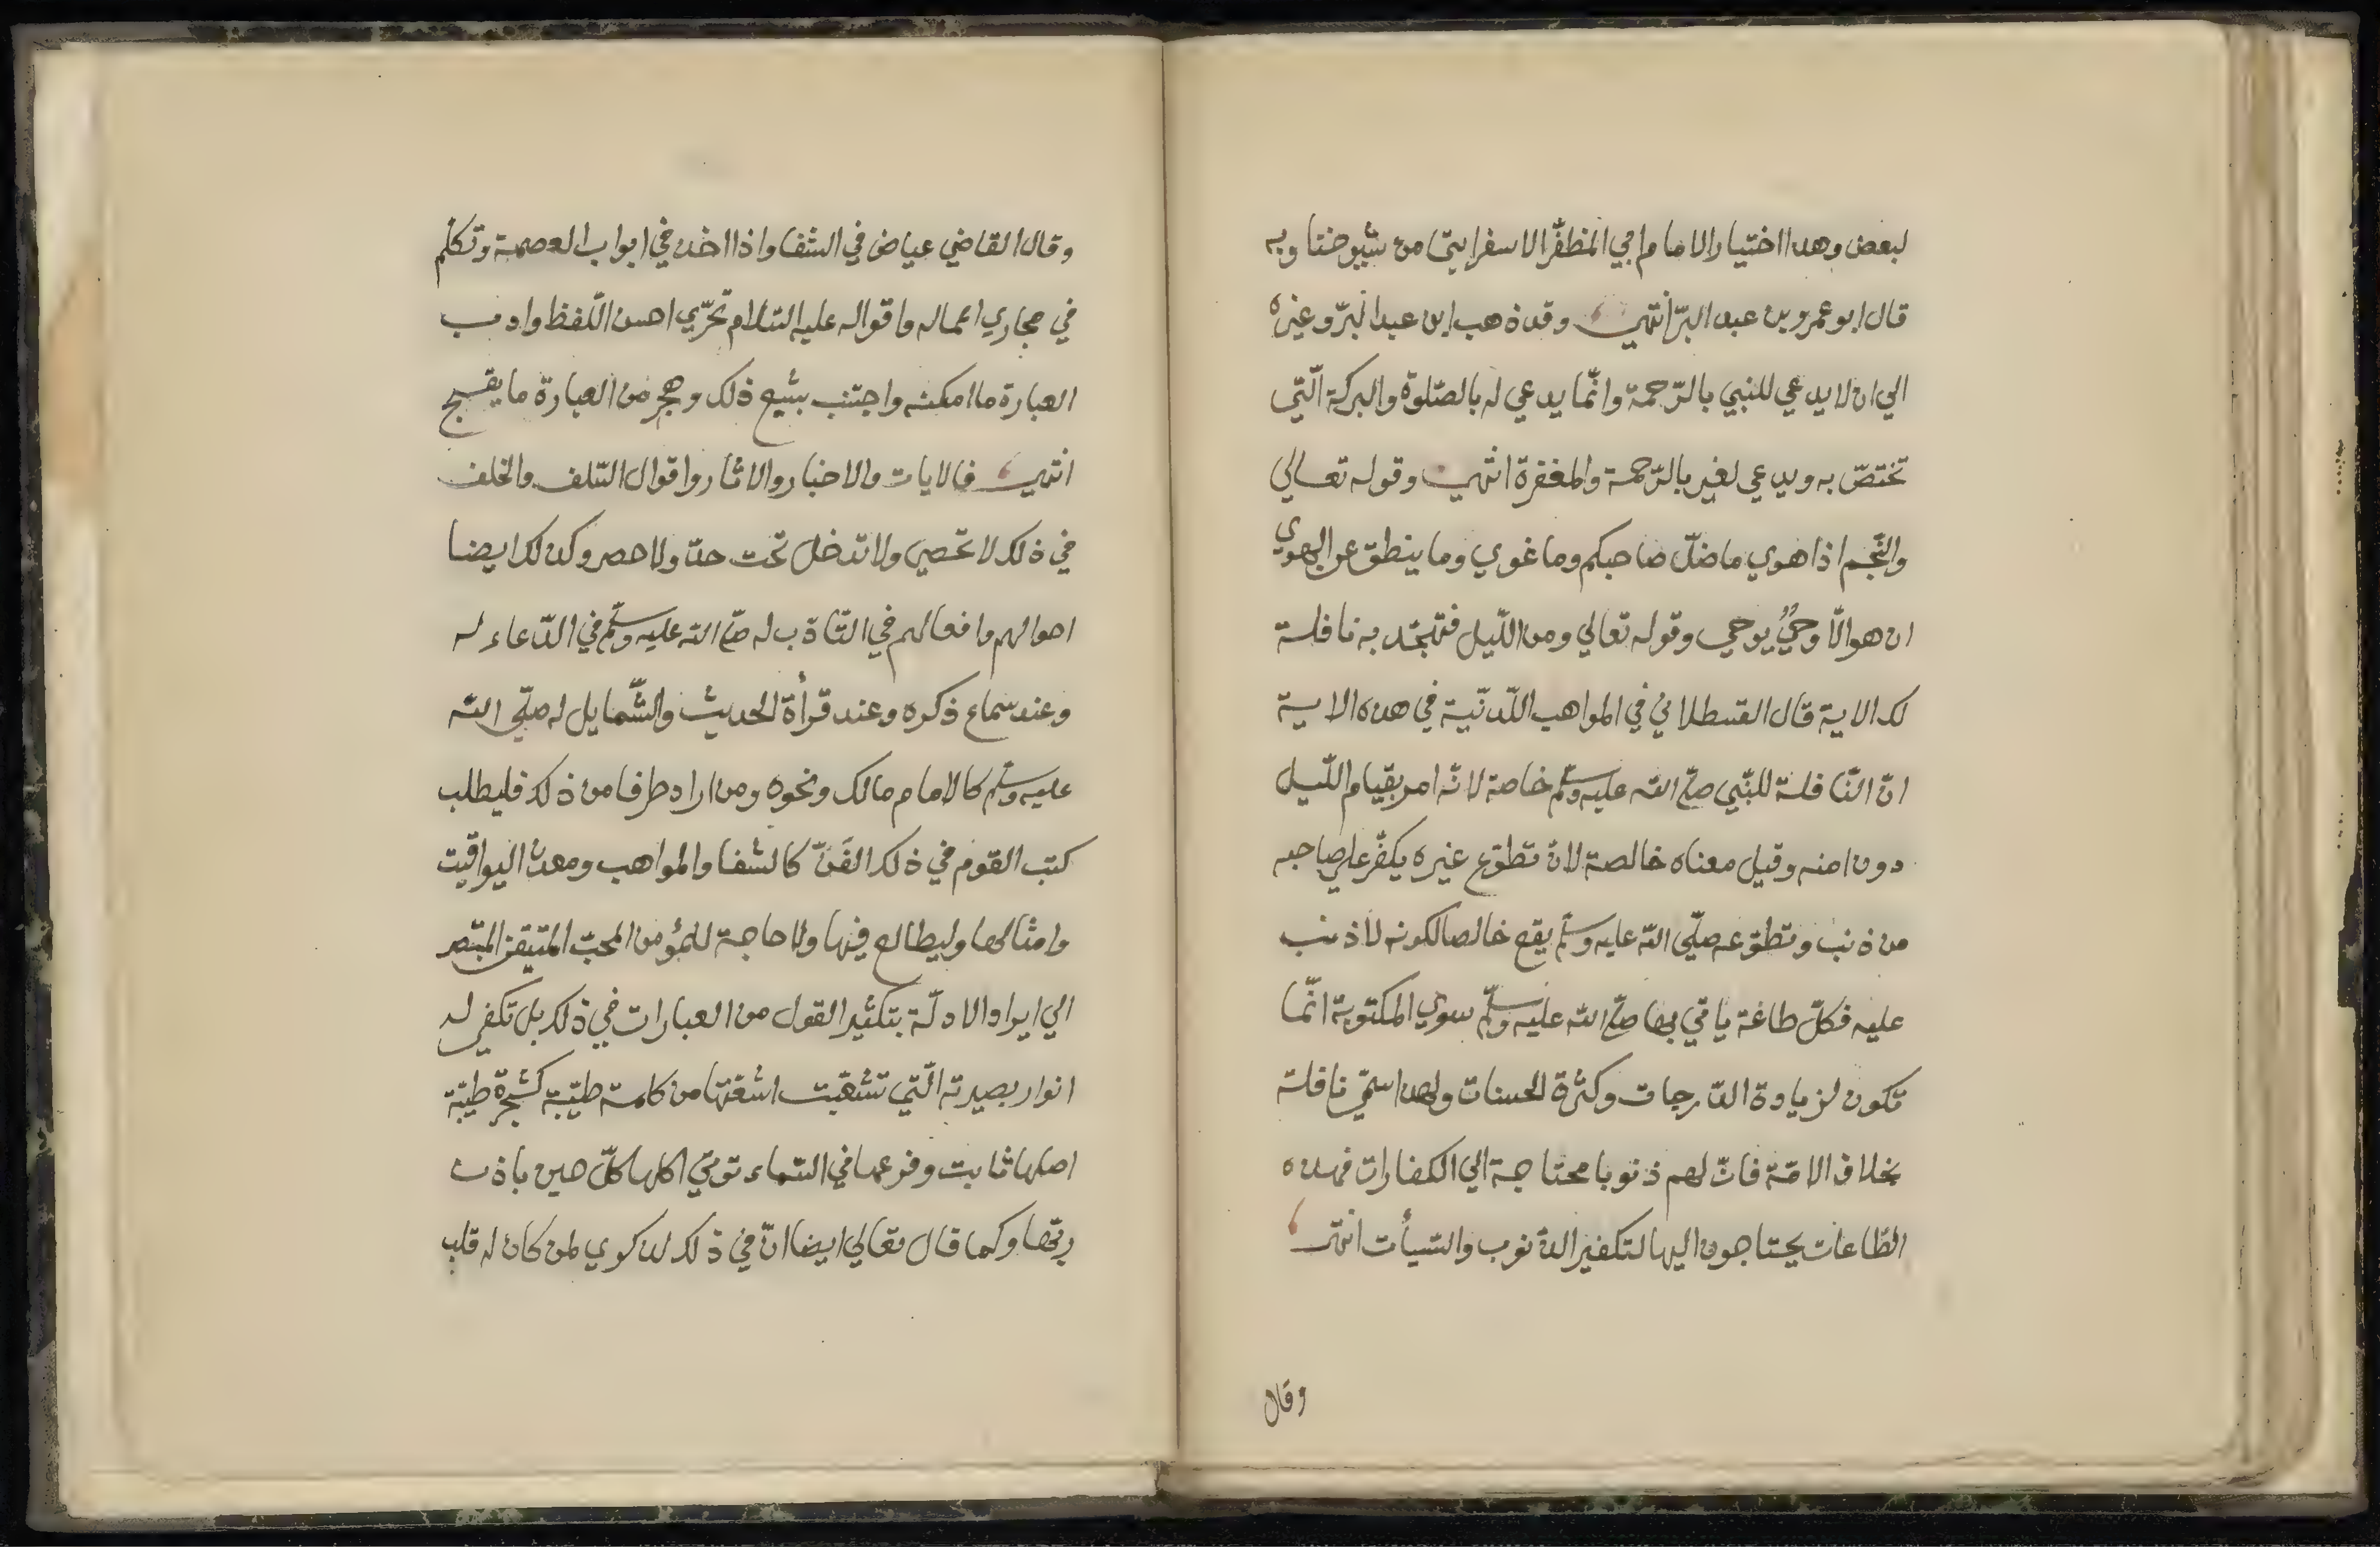 لبعض وهذا اختيار الامام ابي المظفّر الاسفراينيّ من شيوخنا وبه
قال ابو عمرو بن عبد البرّ انتهي وقد ذهب ابن عبد البرّ وغيره
الي ان لا يدعي للنبي بالرّحمة وانّما يدعي له بالصّلوة والبركة الّتي
تختصّ به ويدعي لغير بالرّحمة والمغفرة انتهي وقوله تعالي
والنّجم اذا هوي ما ضلّ صاحبكم وما غوي وما ينطق عن الهوي
ان هو الّا وحيٌ يوحي وقوله تعالي ومن اللّيل فتهجّد به نافلة
لك الاية قال القسطلاني في المواهب اللّدنّية في هذه الاية
انّ النّافلة للنّبي صلّى الله عليه وسلّم خاصة لانّه امر بقيام اللّيل
دون امته وقيل معناه خالصة لانّ تطوّع غيره يكفّر علي صاحبه
من ذنب وتطوّعه صلّى الله عليه وسلّم يقع خالصا لكونه لا ذنب
عليه فكلّ طاعة ياتي بها صلّى الله عليه وسلّم سوي المكتوبة انّما
تكون لزيادة الدّرجات وكثرة الحسنات ولهذا سمّي نافلة
بخلاف الامّة فانّ لهم ذنوبا محتاجة الي الكفارات فهذه
الطّاعات يحتاجون اليها لتكفير الذّنوب والسّيأت انتهي
وقال
وقال القاضي عياض في الشفا واذا اخذ في ابواب العصمة وتكلّم
في مجاري اعماله واقواله عليه السّلام تحرّي احسن اللّفظ وادب
العبارة ما امكنه واجتنب بشيع ذلك وهجر من العبارة ما يقبح
انتهي فالايات والاخبار والاثار واقوال السّلف والخلف
في ذلك لا تحصي ولا تدخل تحت حدّ ولا حصر وكذلك ايضا
احوالهم وافعالهم في التّادّب له صلّى الله عليه وسلّم في الدّعاء له
وعند سماع ذكره وعند قرأة الحديث والشّمايل له صلّي الله
عليه وسلّم كالامام مالك ونحوه ومن اراد طرفا من ذلك فليطلب
كتب القوم في ذلك الفَنّ كالشفا والمواهب ومعدن اليواقيت
وامثالها وليطالع فيها ولا حاجة للمؤمن المحبّ المتيقن المتبصر
الي ايراد الادلّة بتكثير القول من العبارات في ذلك بل تكفي له
انوار بصيرته الّتي تشعّبت اشعّتها من كلمة طيّبة كشجرة طيّبة
اصلها ثابت وفرعها في السّماء توتي اكلها كلّ حين باذن
ربّها وكما قال تعالي ايضا انّ في ذلك لذكري لمن كان له قلب